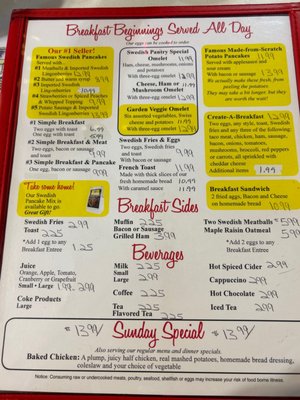 Breakfast Beginnings Served All Day
Our eggs can be cooked to order.
Our #1 Seller!
Famous Swedish Pancakes
Served with
#1 Meatballs & Imported Swedish
Lingonberries 13.99
#2 Butter and warm syrup
#3 Imported Swedish
Lingonberries 10.99
#4 Imported Swedish Spiced Peaches
& Whipped Topping
#5 Potato Sausage & Imported
Swedish Lingonberries 13.99
#1 Simple Breakfast
Two eggs with toast
One egg with toast
#2 Simple Breakfast & Meat
Two eggs, bacon or sausage
and toast 9.99
#3 Simple Breakfast & Pancakes
One egg, bacon or sausage
Take some home!
Our Swedish
Pancake Mix is
available to go.
Great Gift!
Swedish Pantry Special
Omelet 11.99
Ham, cheese, mushrooms, onions
and potatoes
With three-egg omelet
Cheese, Ham, or
Mushroom Omelet 11.99
With three-egg omelet
Garden Veggie Omelet
Six assorted vegetables, Swiss
cheese and potatoes 11.99
With three-egg omelet
Swedish Fries & Eggs
Two eggs, Swedish fries,
bacon or sausage 11.99
French Toast 11.99
Made with thick slices of our
fresh homemade bread 10.99
With caramel sauce 11.99
Famous Made-from-Scratch
Potato Pancakes 11.99
Served with applesauce and
sour cream
With bacon or sausage 13.99
We actually make these fresh, from
peeling the potatoes.
They may take a bit longer, but they
are worth the wait!
Create-A-Breakfast
Two eggs, any style, toast, Swedish
fries and any three of the following:
taco meat, chicken, ham, sausage,
bacon, onions, tomatoes,
mushrooms, broccoli, red peppers
or carrots, all sprinkled with
cheddar cheese
Additional items 1.99
Breakfast Sandwich
2 fried eggs, Bacon and Cheese
on homemade bread 10.99
Breakfast Sides
Swedish Fries 2.99
Toast 2.25
*Add 1 egg to any
Breakfast Entree 1.25
Muffin 2.25
Bacon or Sausage
Grilled Ham 3.99
Two Swedish Meatballs 5.99
Maple Raisin Oatmeal 5.99
*Add 2 eggs to any
Breakfast Entree 2.50
Beverages
Juice
Orange, Apple, Tomato,
Cranberry or Grapefruit
Small • Large 1.99, 2.99
Coke Products
Large
Milk 2.25
Small 2.25
Large 2.99
Coffee 2.25
Tea 2.25
Flavored Tea 2.25
Hot Spiced Cider 2.99
Cappuccino 2.99
Hot Chocolate 2.99
Iced Tea 2.99
13.99 Sunday Special 13.99
Also serving our regular menu and dinner specials.
Baked Chicken: A plump, juicy half chicken, real mashed potatoes, homemade bread dressing,
coleslaw or your choice of vegetable
Notice: Consuming raw or undercooked meats, poultry, seafood, shellfish or eggs may increase your risk of food borne illness.